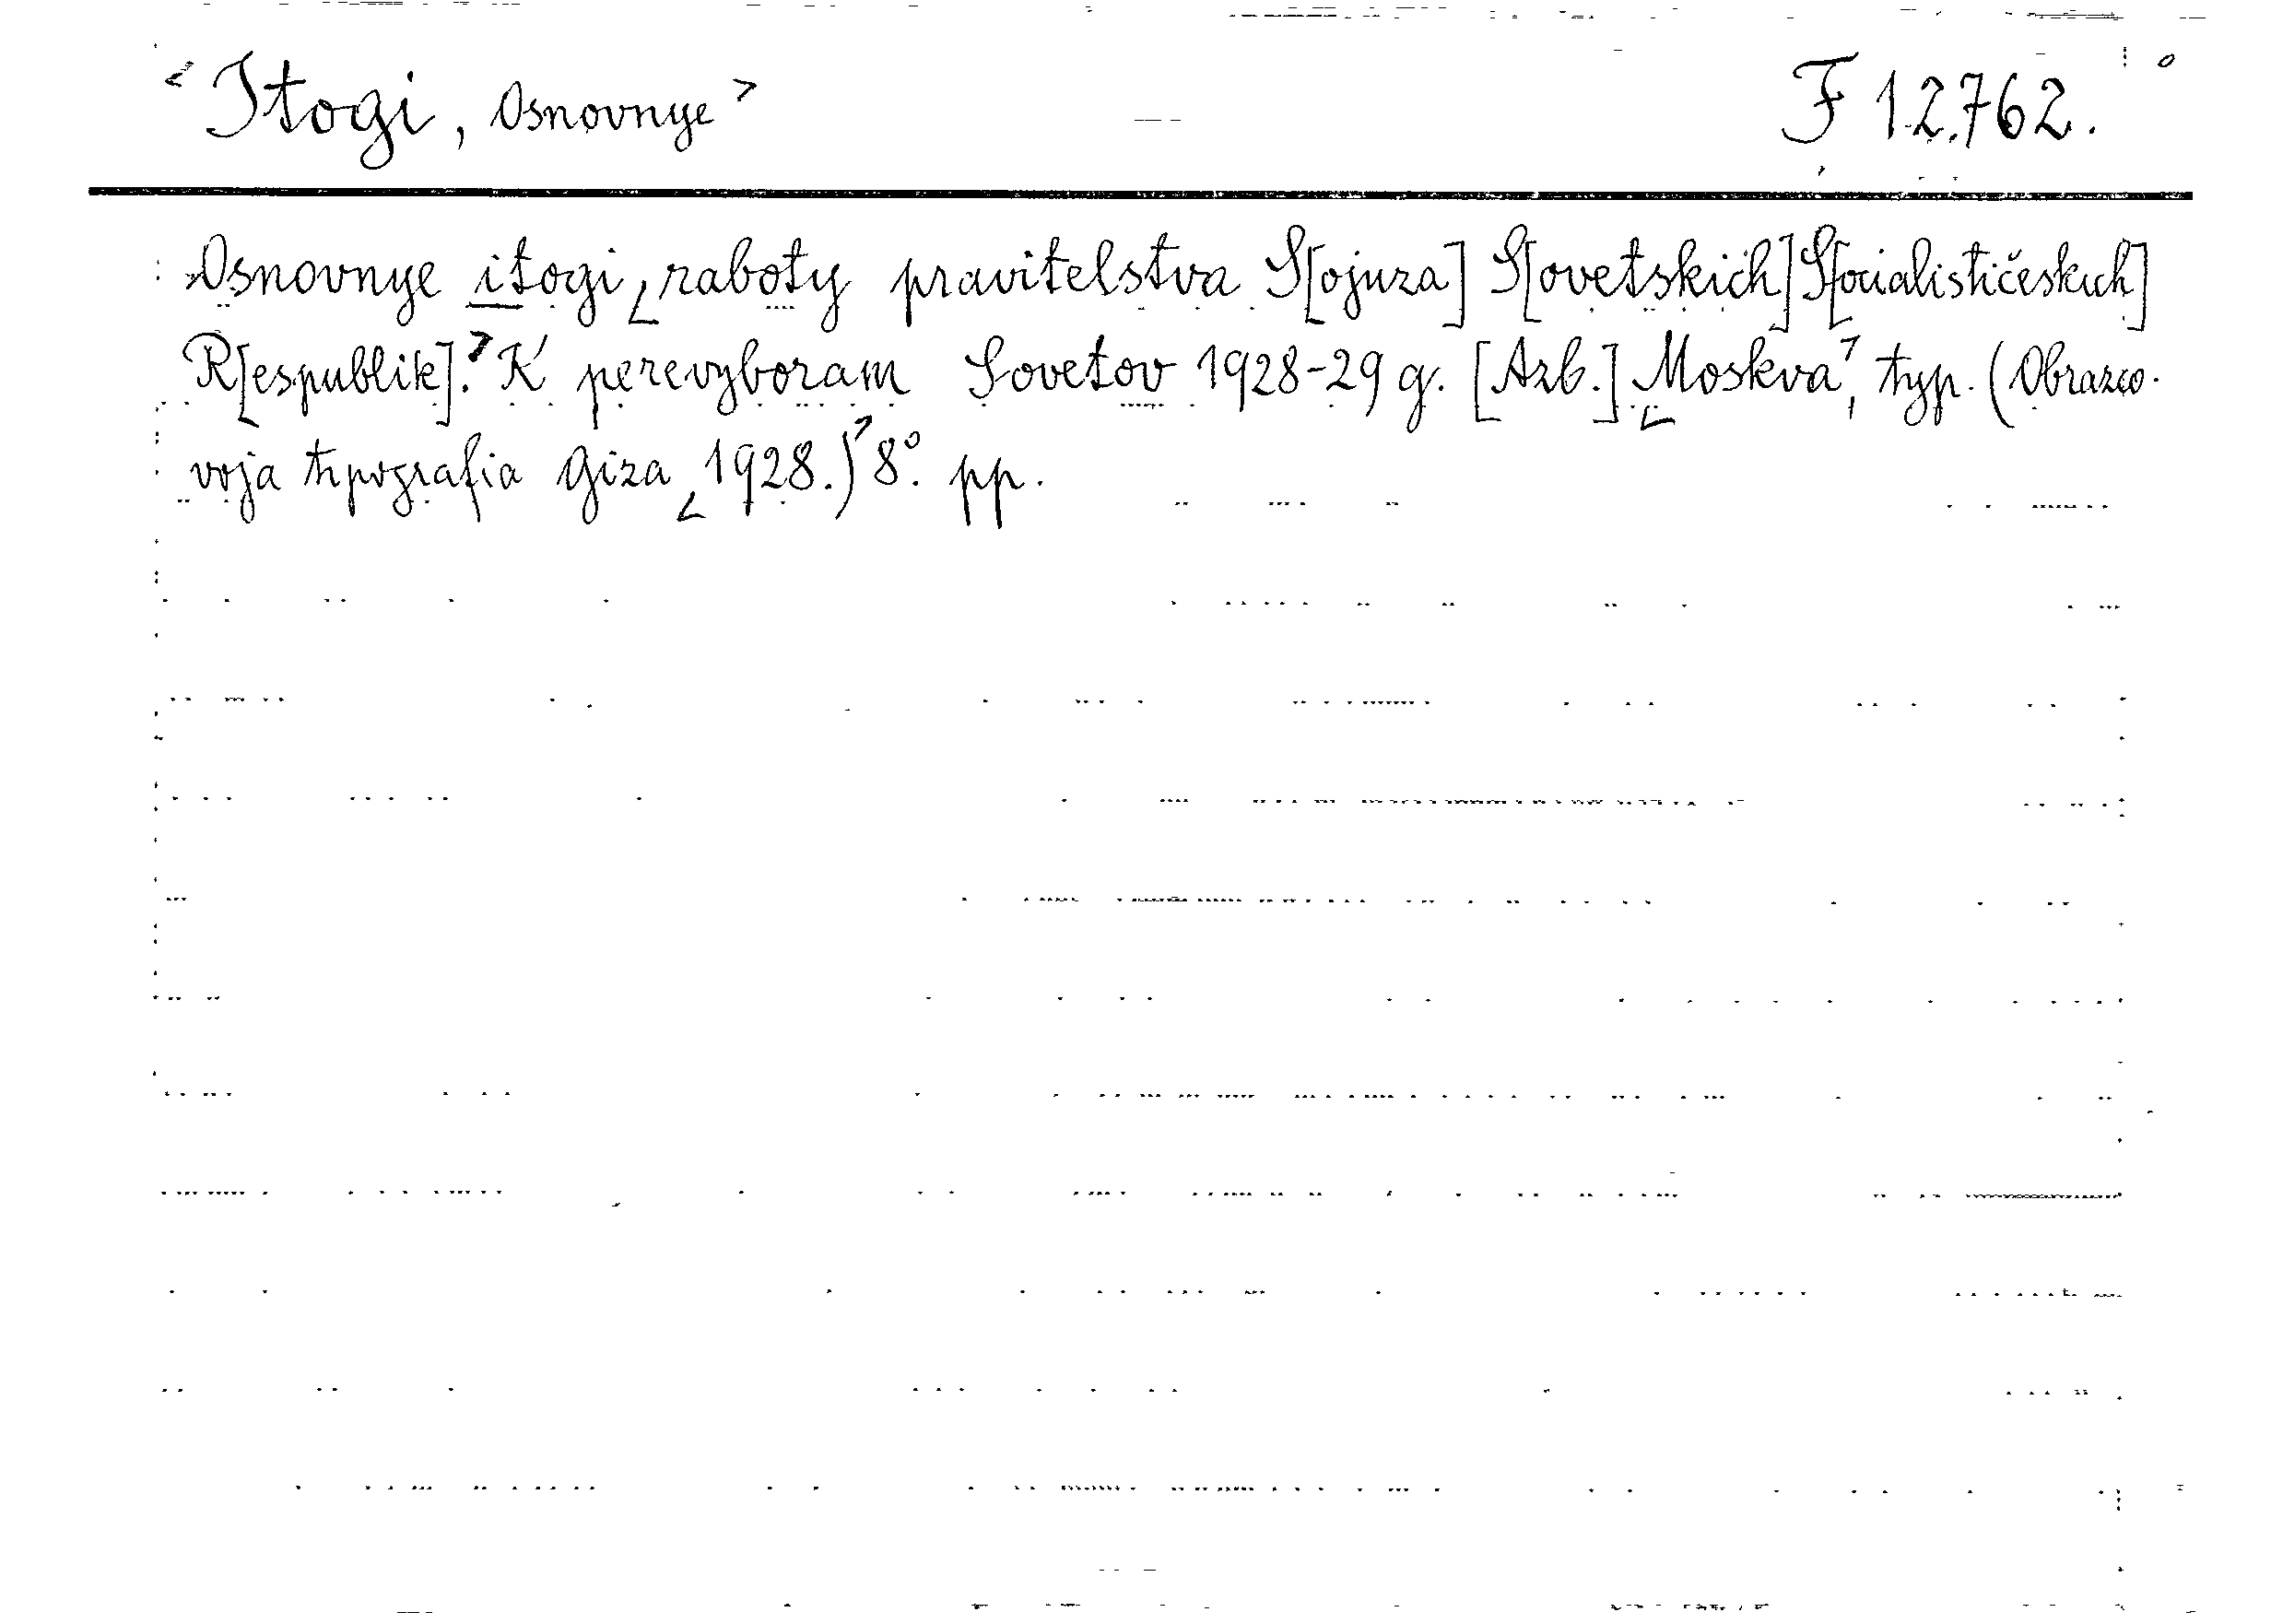 < Itogi, Osnovnye > F 12.762.
Osnovnye itogi < raboty pravitelstva S[ojuza] S[ovetskich] S[ocialističeskich]
R[espublik]. > K perevyboram Sovetov 1928-29 g. [Azb.] < Moskva >, typ. (Obrazco-
voja tipografia Giza < 1928.) > 8°. pp.